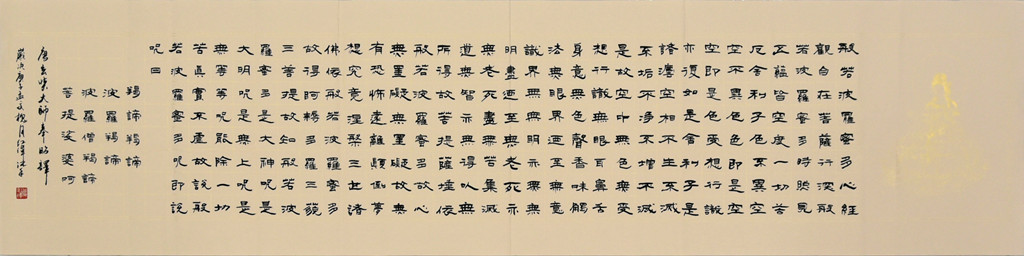 般若波羅蜜多心經
觀自在菩薩行深般
若波羅蜜多時照見
五蘊皆空度一切苦
厄舍利子色不異空
空不異色色即是空
空即是色受想行識
亦復如是舍利子是
諸法空相不生不滅
不垢不淨不增不減
是故空中無色無受
想行識無眼耳鼻舌
身意無色聲香味觸
法無眼界乃至無意
識界無無明亦無無
明盡乃至無老死亦
無老死盡無苦集滅
道無智亦無得以無
所得故菩提薩埵依
般若波羅蜜多故心
無罣礙無罣礙故無
有恐怖遠離顛倒夢
想究竟涅槃三世諸
佛依般若波羅蜜多
故得阿耨多羅三藐
三菩提故知般若波
羅蜜多是大神呪是
大明呪是無上呪是
無等等呪能除一切
苦真實不虛故說般
若波羅蜜多呪即說
呪曰
羯諦羯諦
波羅羯諦
波羅僧羯諦
菩提娑婆呵
唐玄奘大師奉昭譯
歲次庚子